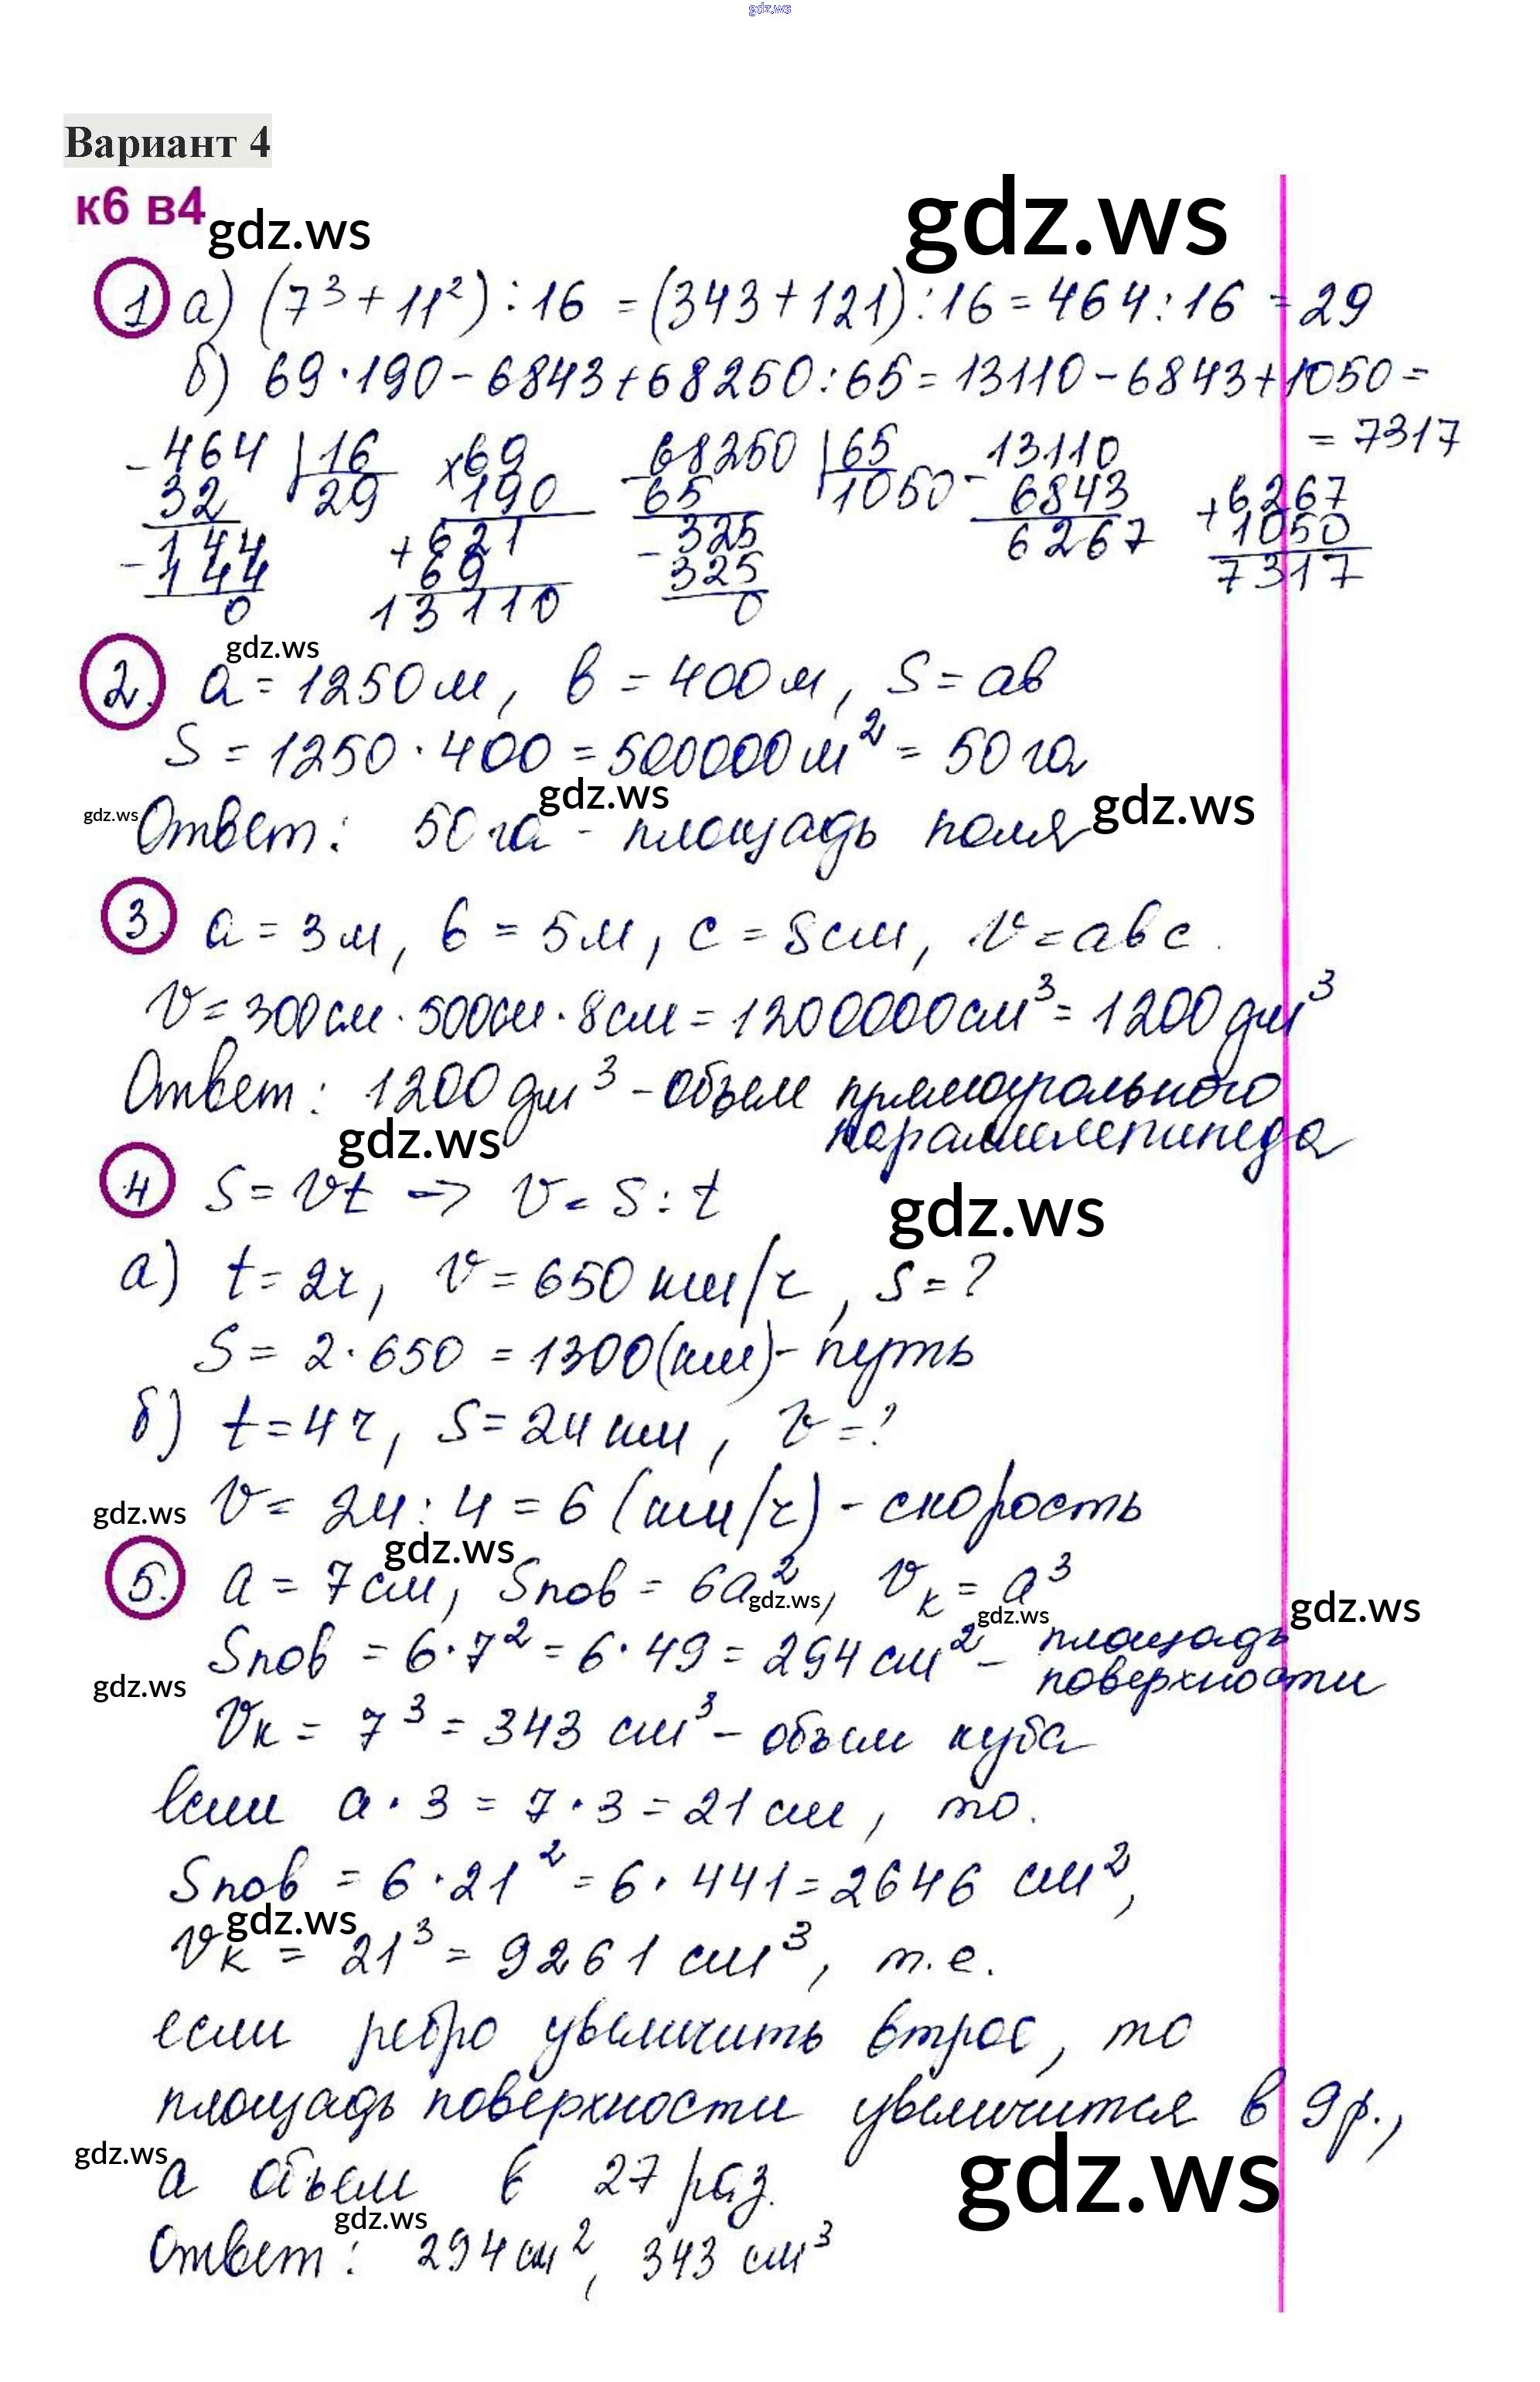 gdz.ws
Вариант 4
к6 в4
gdz.ws
gdz.ws
1 а) (7³ + 11²) : 16 = (343 + 121) : 16 = 464 : 16 = 29
б) 69 · 190 - 6843 + 68250 : 65 = 13110 - 6843 + 1050 =
= 7317
- 464 | 16 × 69 - 68250 | 65 - 13110
32 29 190 65 1050 6843 + 6267
144 + 621 - 325 6267 1050
- 144 69 325 7317
0 13110 0
gdz.ws
2. a = 1250 м, b = 400 м, S = ab
S = 1250 · 400 = 500000 м² = 50 га
gdz.ws
gdz.ws
gdz.ws
Ответ: 50 га - площадь поля
3. a = 3 м, b = 5 м, c = 8 см, V = abc.
V = 300 см · 500 см · 8 см = 1200000 см³ = 1200 дм³
Ответ: 1200 дм³ - объем прямоугольного
параллелепипеда
gdz.ws
4 S = Vt -> V = S : t
gdz.ws
а) t = 2 ч, V = 650 км/ч, S = ?
S = 2 · 650 = 1300 (км) - путь
б) t = 4 ч, S = 24 км, V = ?
gdz.ws
V = 24 : 4 = 6 (км/ч) - скорость
gdz.ws
5. a = 7 см, Sпов = 6a², Vк = a³
gdz.ws
gdz.ws
gdz.ws
Sпов = 6 · 7² = 6 · 49 = 294 см² - площадь
поверхности
gdz.ws
Vк = 7³ = 343 см³ - объем куба
если a · 3 = 7 · 3 = 21 см, то.
Sпов = 6 · 21² = 6 · 441 = 2646 см²,
gdz.ws
Vк = 21³ = 9261 см³, т.е.
если ребро увеличить втрое, то
площадь поверхности увеличится в 9 р.,
gdz.ws
gdz.ws
а объем в 27 раз.
gdz.ws
Ответ: 294 см², 343 см³